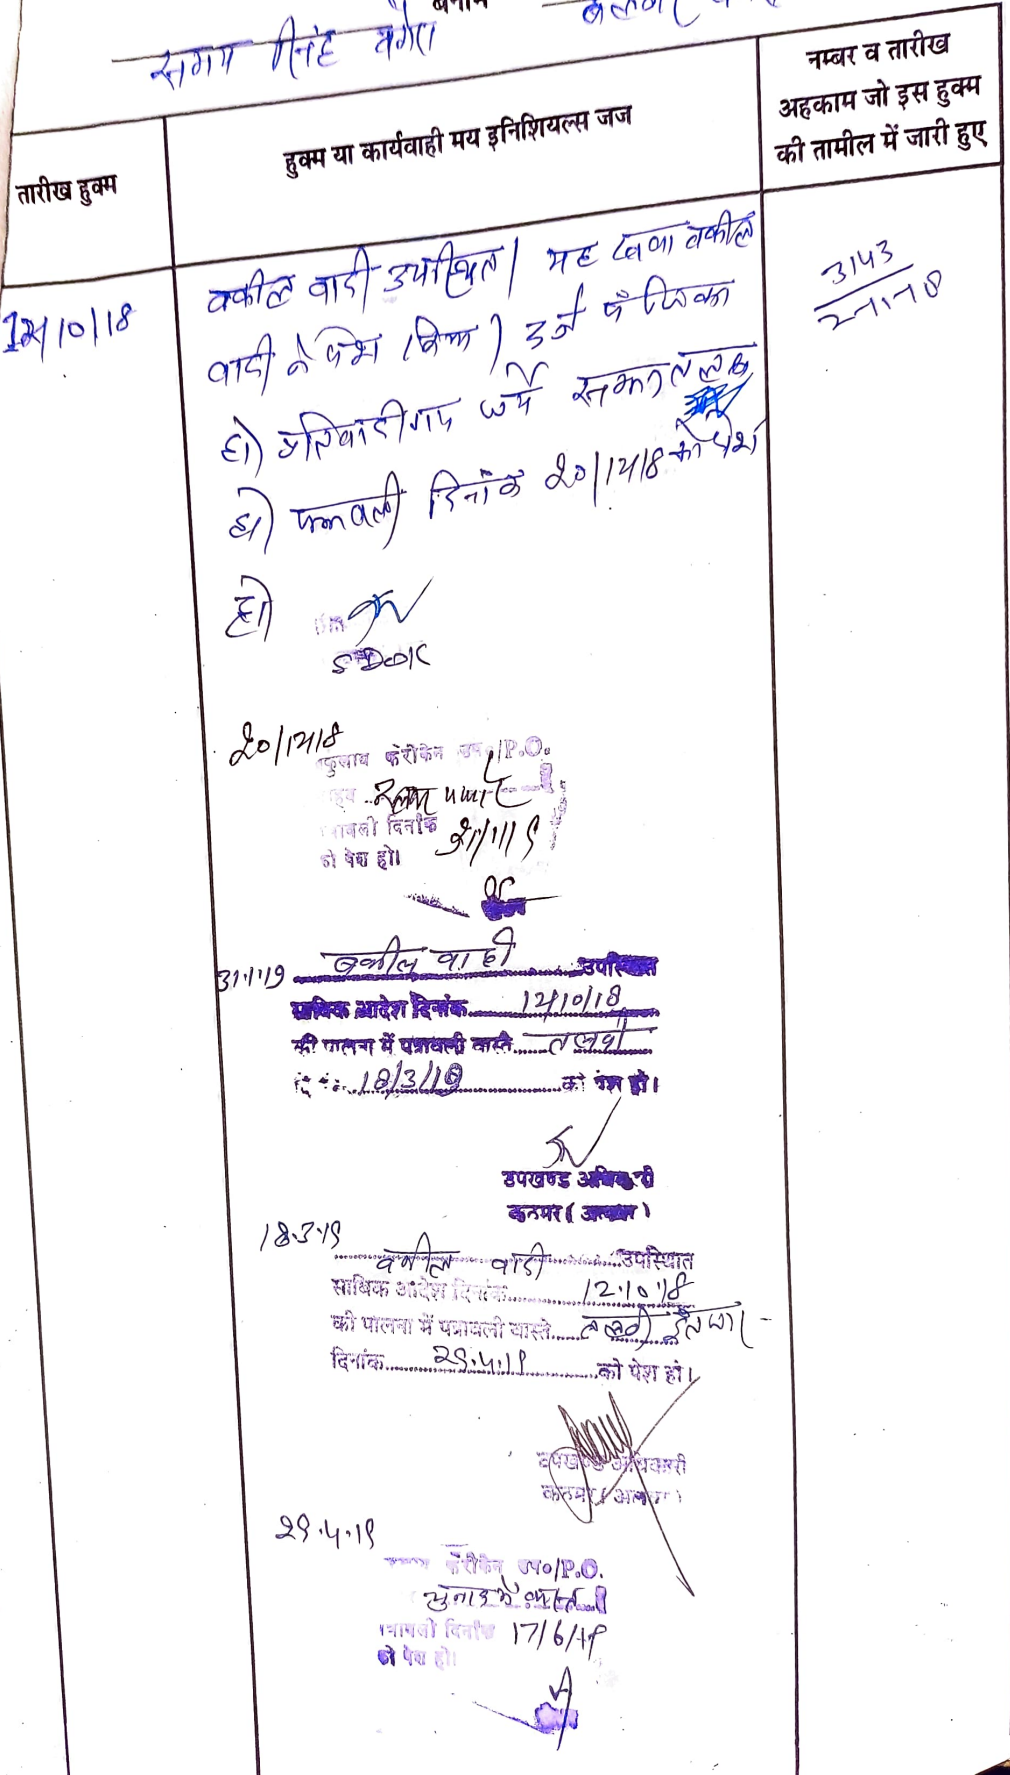 बनाम
समय सिंह वगैरा
तारीख हुक्म
हुक्म या कार्यवाही मय इनिशियल्स जज
नम्बर व तारीख
अहकाम जो इस हुक्म
की तामील में जारी हुए
12/10/18
वकील वादी उपस्थित। यह दावा वकील
वादी ने पेश किया। दर्ज पंजिका
हो। प्रतिवादीगण जर्ये सम्मन तलब
हो। पत्रावली दिनांक 20/12/18 को पेश
हो।
3143
20/12/18
P.O.
दिनांक
को पेश हो।
31.1.19
वकील वादी उपस्थित
साबिक आदेश दिनांक 12/10/18
की पालना में पत्रावली वास्ते तलबी
18/3/19 को पेश हो।
उपखण्ड अधिकारी
कठूमर (अलवर)
18.3.19
वकील वादी उपस्थित
साबिक आदेश दिनांक 12.10.18
की पालना में पत्रावली वास्ते तलबी इन्तजार
दिनांक 29.4.19 को पेश हो।
उपखण्ड अधिकारी
कठूमर (अलवर)
29.4.19
P.O.
दिनांक 17/6/19
को पेश हो।